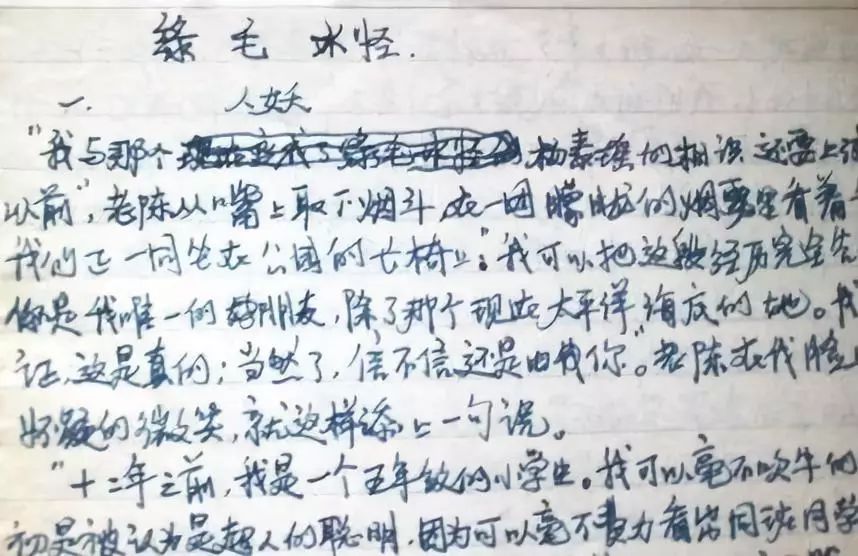 绿毛水怪.
一. 人妖
"我与那个 杨素瑶的相识 还要上
以前", 老陈从嘴上取下烟斗 在一团朦胧的烟雾里看着
我们正一同坐在公园的长椅上。"我可以把这段经历完全告
你是我唯一的好朋友, 除了那个现在太平洋海底的她。我
证, 这是真的; 当然了, 信不信还是由你"。老陈在我脸上
的微笑, 就这样添上一句说。
"十二年之前, 我是一个五年级的小学生。我可以毫不吹牛
初是被认为是超人的聪明, 因为可以毫不费力看出同班同学